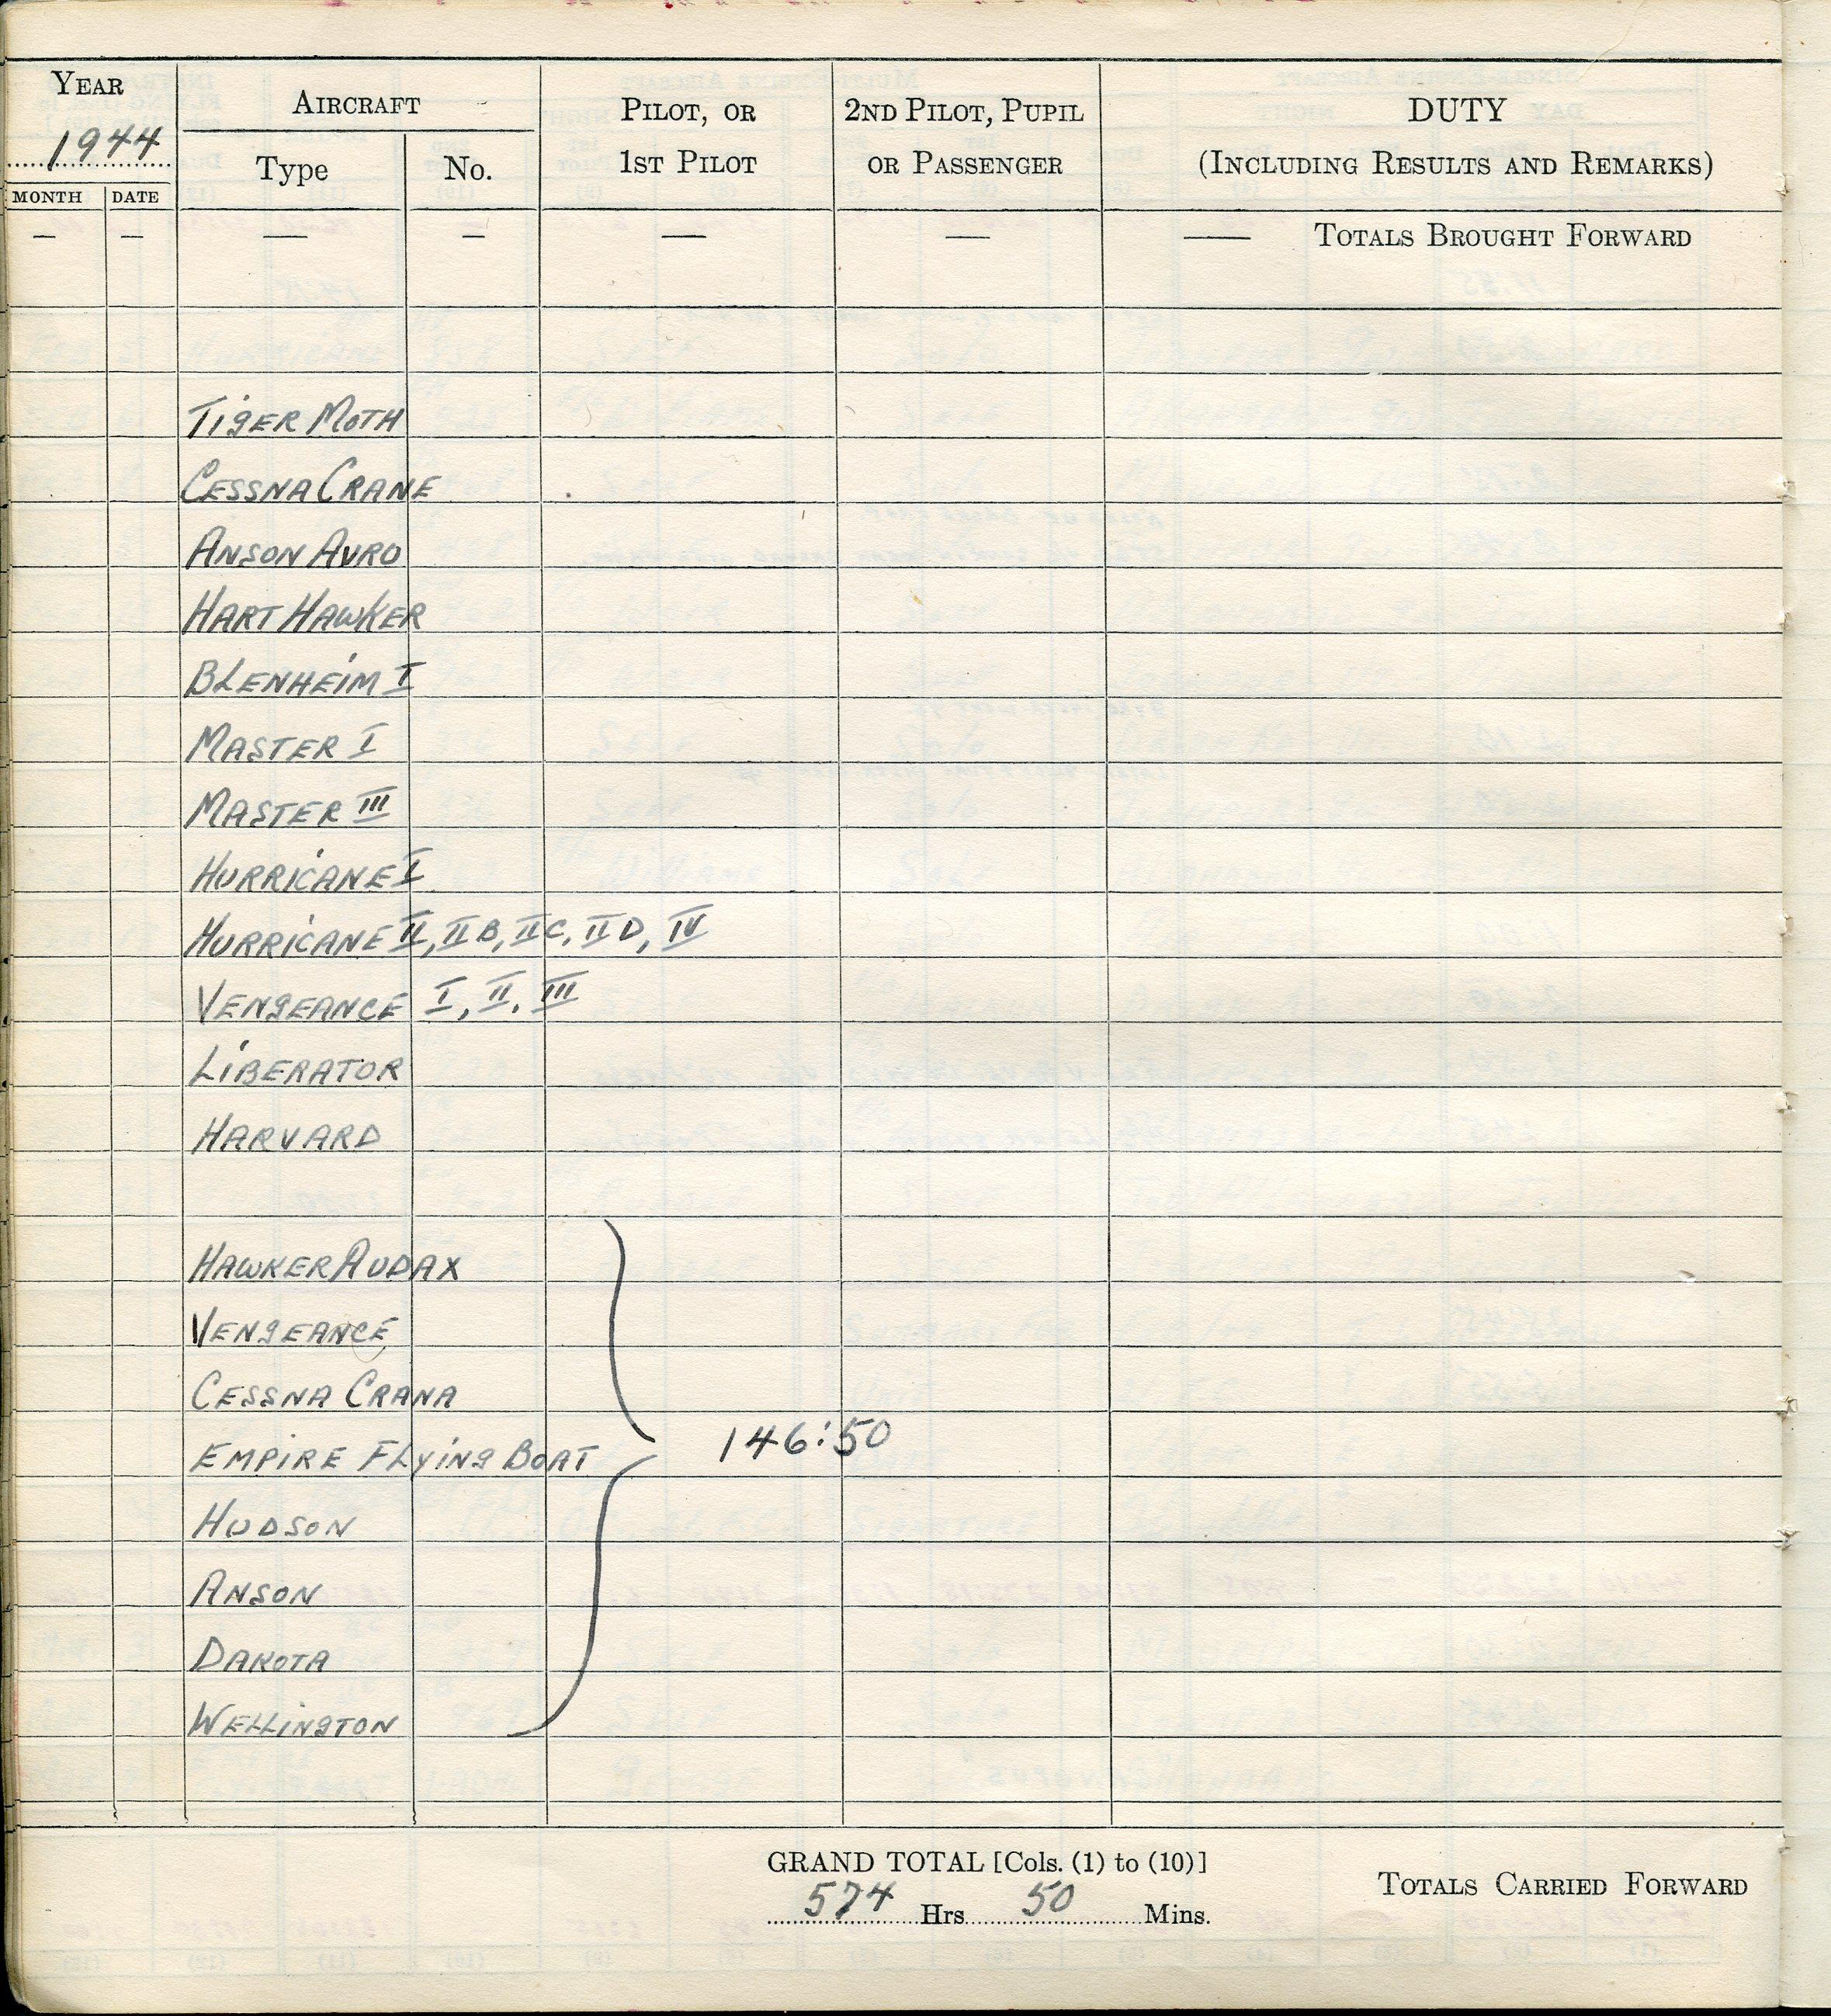 YEAR
1944
MONTH DATE
AIRCRAFT
Type No.
PILOT, OR
1ST PILOT
2ND PILOT, PUPIL
OR PASSENGER
DUTY
(INCLUDING RESULTS AND REMARKS)
— — — — — — — TOTALS BROUGHT FORWARD
TIGER MOTH
CESSNA CRANE
ANSON AVRO
HART HAWKER
BLENHEIM I
MASTER I
MASTER III
HURRICANE I
HURRICANE II, II B, II C, II D, IV
VENGEANCE I, II, III
LIBERATOR
HARVARD
HAWKER AUDAX
VENGEANCE
CESSNA CRANA
146:50
EMPIRE FLYING BOAT
HUDSON
ANSON
DAKOTA
WELLINGTON
GRAND TOTAL [Cols. (1) to (10)]
574 Hrs. 50 Mins.
TOTALS CARRIED FORWARD